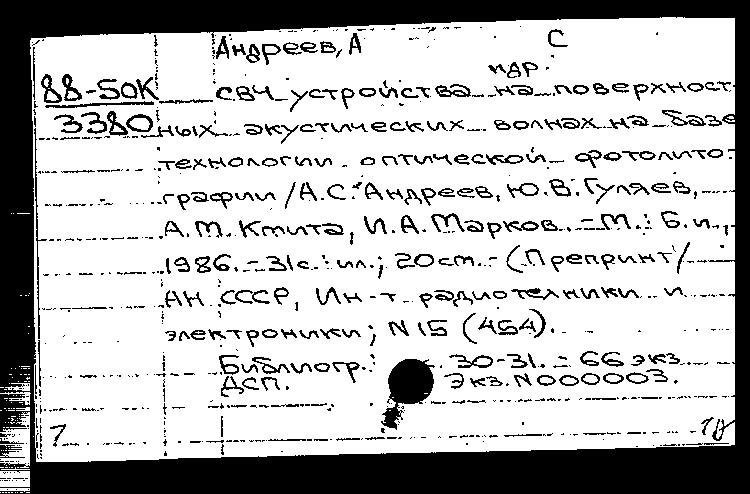 Андреев, А С
и др.
88-50К СВЧ устройства на поверхност-
3380 ных акустических волнах на базе
технологии оптической фотолито-
графии / А.С. Андреев, Ю.В. Гуляев,
А.М. Кмита, И.А. Марков. - М.: Б. и.,
1986. - 31с.: ил.; 20 см. - (Препринт /
АН СССР, Ин-т радиотехники и
электроники; N 15 (454).
Библиогр.: 30-31. - 66 экз.
ДСП. Экз. N000003.